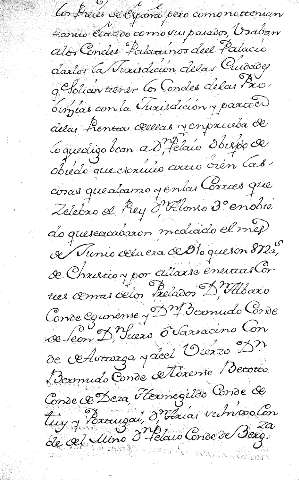 los Reies de España pero como no tenian
tanto estado como sus pasados Usaban
a los Condes Palatinos del Palacio
darles la Jurisdicion de las Ciudades
q. solian tener los Condes de las Pro
binzias con la Jurisdicion y parte
de las Rentas de ellas y en prueba de
lo que digo bean a Dn. Pelaio Obispo de
obiedo que escriuio arto bien las
cosas que alcanzo y en las Cortes que
Zelebro el Rey Dn. Alonso 3º en obie
do que se acabaron mediado el mes
de Junio de la era de 910 que son 872
de Christo y por allarse en estas Cor
tes demas de los Prelados Dn. Albaro
Conde de Dn. Bermudo Conde
de Leon Dn. Suero o Sarracino Con
de de Astorga y de el Vierzo Dn.
Bermudo Conde de Torense Betotte
Conde de Deza Hermegildo Conde de
tuy y Portugal, Dn. Arias su hixo Con
de del Mino Dn. Pelaio Conde de Berg.za